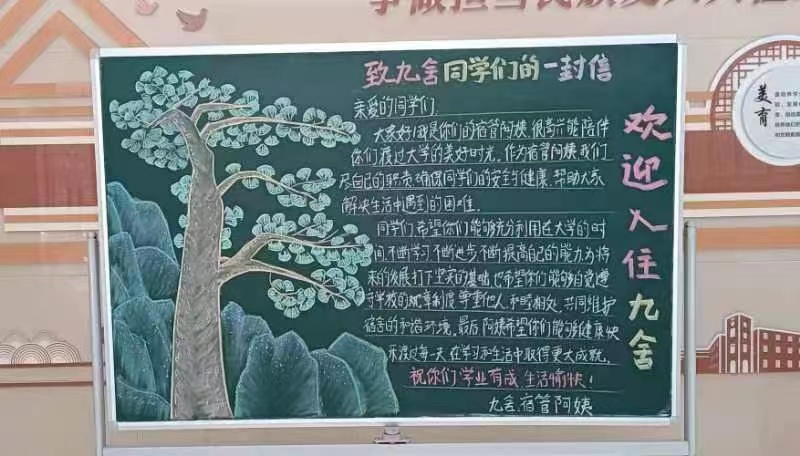 致九舍同学们的一封信
亲爱的同学们
大家好!我是你们的宿管阿姨,很高兴能陪伴
你们度过大学的美好时光。作为宿管阿姨,我们
尽自己的职责,确保同学们的安全健康,帮助大家
解决生活中遇到的困难.
同学们,希望你们能够充分利用在大学的时
间,不断学习,不断进步,不断提高自己的能力,为将
来的发展打下坚实的基础.也希望你们能够自觉遵
守学校的规章制度,尊重他人,和睦相处,共同维护
宿舍的和谐环境.最后,阿姨希望你们能够健康快
乐渡过每一天,在学习和生活中取得更大成就.
祝你们学业有成 生活愉快!
九舍宿管阿姨
欢迎入住九舍
美育